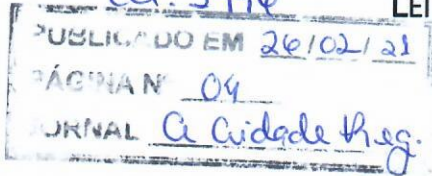 LEI
PUBLICADO EM 26/02/21
PÁGINA Nº 04
JORNAL A Cidade Reg.